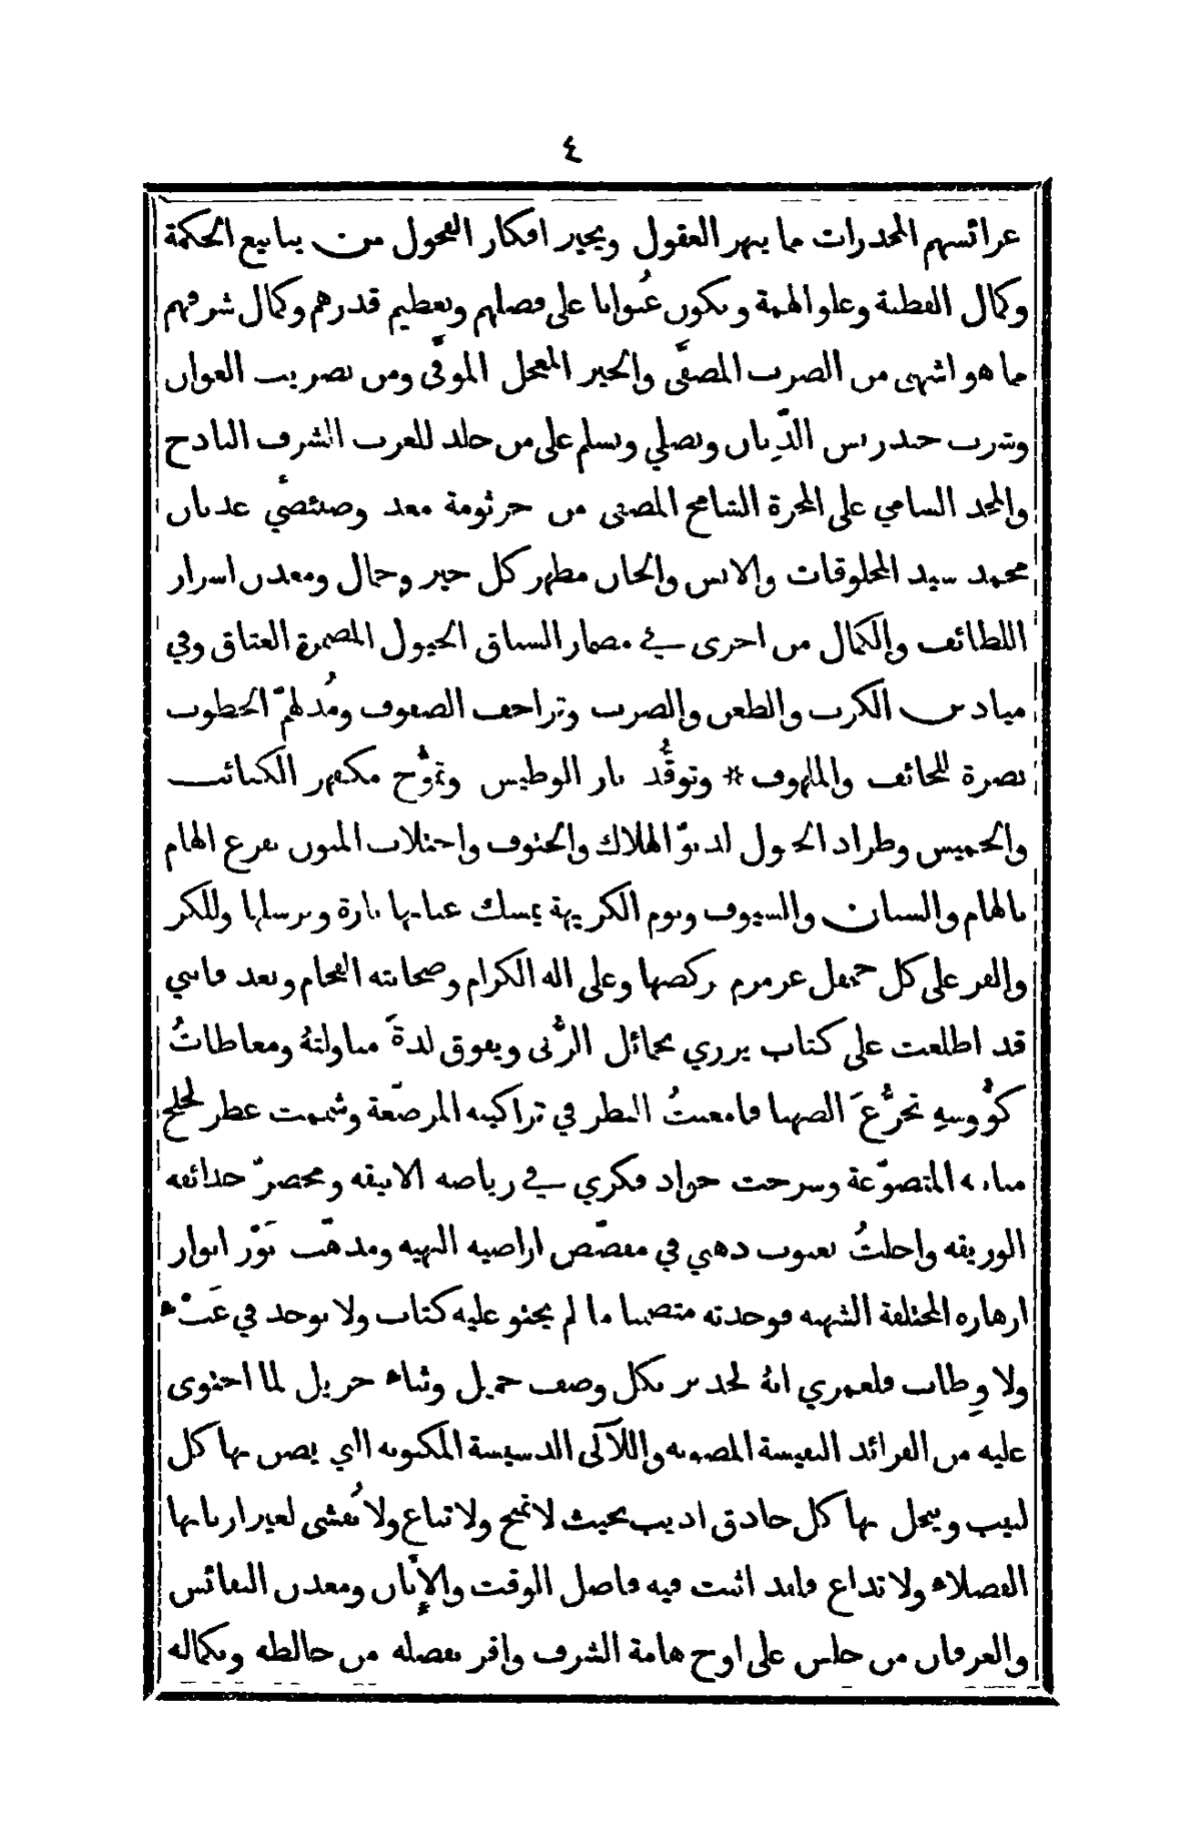 ٤
عرائسهم المخدرات ما يبهر العقول ويحير افكار الفحول من ينابيع الحكمة
وكمال الفطنة وعلو الهمة ويكون عُنوانا على فضلهم وتعظيم قدرهم وكمال شرفهم
ما هو اشهى من الضرب المصفَّى والخير المعجل الموفَّى ومن تضريب العوان
وشرب خندريس الدِّنان ونصلي ونسلم على من خلد للعرب الشرف الباذح
والمجد السامي على المجرة الشامخ المصفى من جرثومة معد وضئضئي عدنان
محمد سيد المخلوقات والانس والجان مظهر كل خير وجمال ومعدن اسرار
اللطائف والكمال من اجرى في مضمار السباق الخيول المضمرة العتاق وفي
ميادين الكرب والطعن والضرب وتزاحف الصفوف ومُدلهمّ الخطوب
نصرة للخائف والملهوف * وتوقُّد نار الوطيس وتموُّح مكفهر الكتائب
والخميس وطراد الخيول لدنوّ الهلاك والحتوف واختلاب المنون بقرع الهام
بالهام والسنان والسيوف ويوم الكريهة يمسك عنانها تارة ويرسلها وللكر
والفر على كل جحفل عرمرم ركضها وعلى اله الكرام وصحابته الفخام وبعد فانني
قد اطلعت على كتاب يزري بخمائل الرُّبى ويفوق لذةَ مناولتهُ ومعاطاتُ
كؤُوسهِ تجرُّعَ الصهبا فامعنتُ النظر في تراكيبه المرصّعة وشممت عطر لخلخ
مبانيه المتضوّعة وسرحت جواد فكري في رياضه الانيقه ومخضرّ حدائقه
الوريقه واجلتُ بعيوب ذهني في مفضّض اراضيه البهيه ومذهّب نَوْر انوار
ازهاره المختلفة الشهيه فوجدته متضمنا ما لم يحتو عليه كتاب ولا يوجد في عَبْء
ولا وِطاب فلعمري انهُ لجدير بكل وصف جميل وثناء جزيل لما احتوى
عليه من الفرائد النفيسة المصونه واللآلي الدسيسة المكنونه التي يضن بها كل
لبيب ويبخل بها كل حاذق اديب بحيث لا تمنح ولا تباع ولا تُفشى لغير اربابها
الفضلاء ولا تذاع فلقد اثبت فيه فاضل الوقت والإِبّان ومعدن النفائس
والعرفان من جلس على اوج هامة الشرف واقر بفضله من خالطه وبكماله